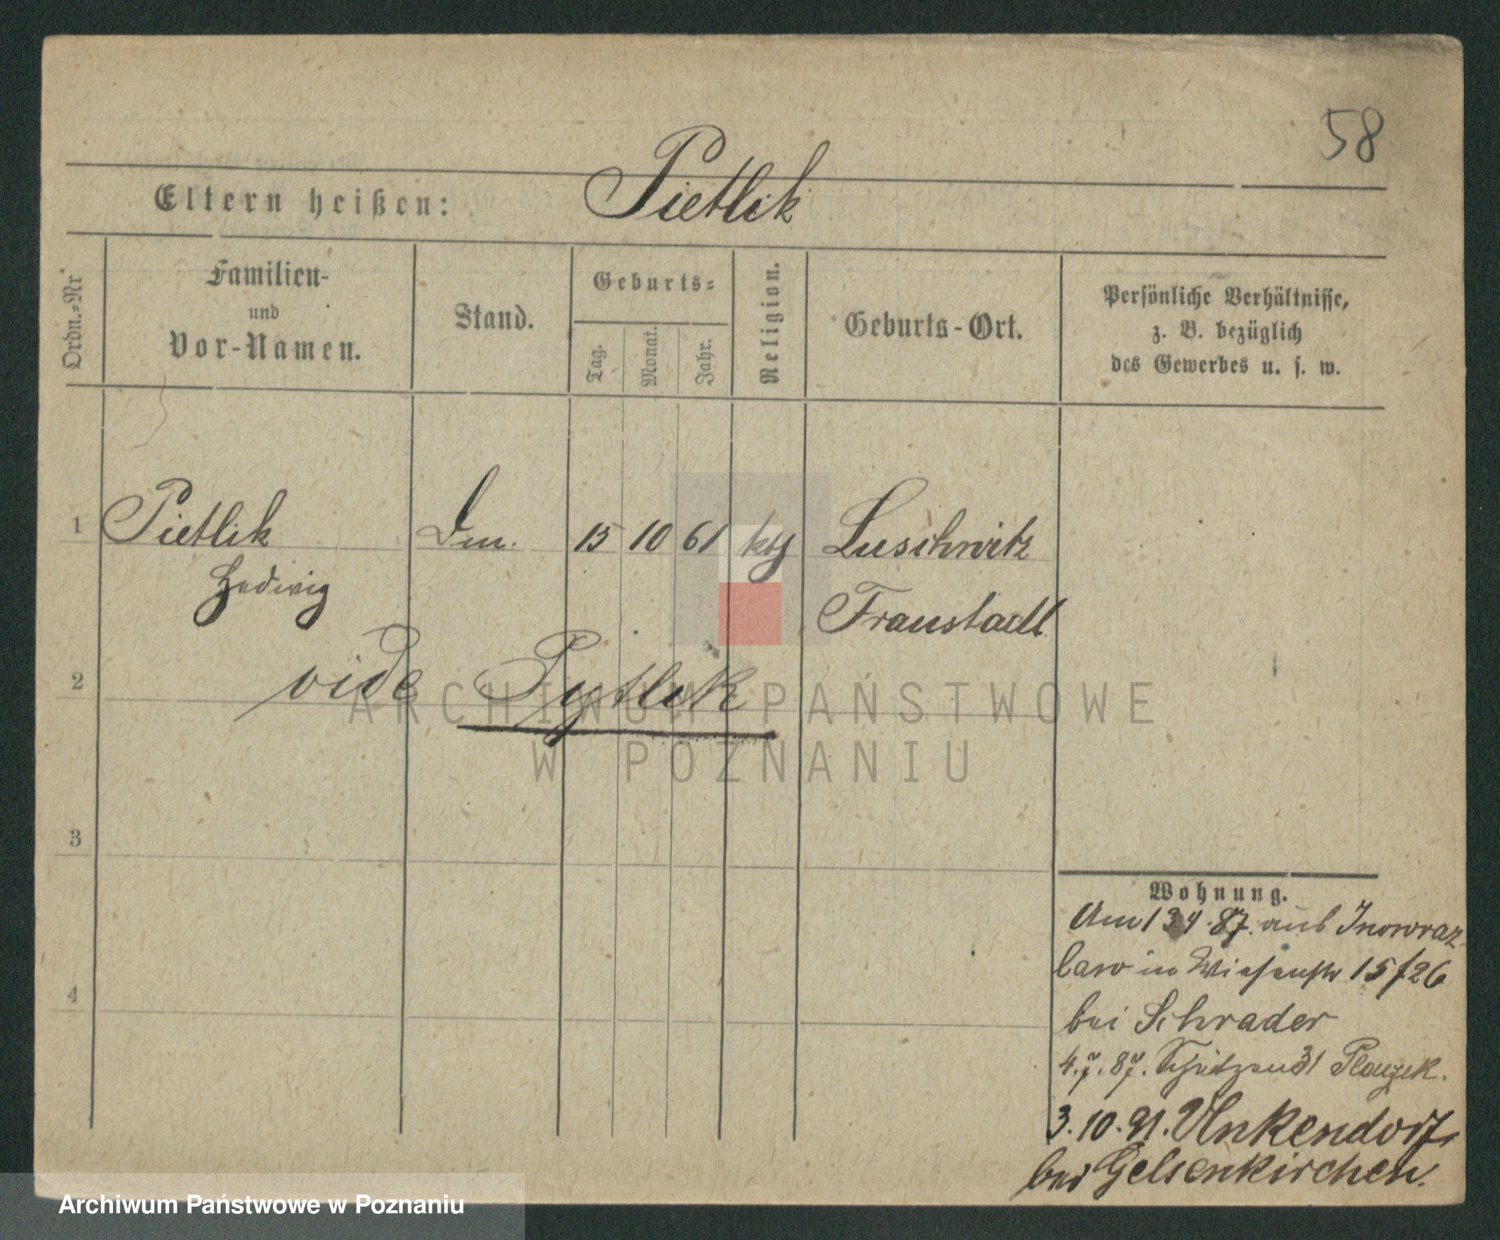 58
Eltern heißen: Pietlik
Ordn.-Nr
Familien-
und
Vor-Namen.
Stand.
Geburts-
Tag.
Monat.
Jahr.
Religion.
Geburts-Ort.
Persönliche Verhältnisse,
z. B. bezüglich
des Gewerbes u. s. w.
1 Pietlik 15 10 61 Luschwitz
Hedwig Fraustadt
2 vide Pytlik
3
4
Wohnung.
Am 87. aus Inowraz-
law in Wiesenstr 15/26
bei Schrader
4.7.87. Schützen 31
3.10.91.
bei Gelsenkirchen.
ARCHIWUM PAŃSTWOWE
W POZNANIU
Archiwum Państwowe w Poznaniu